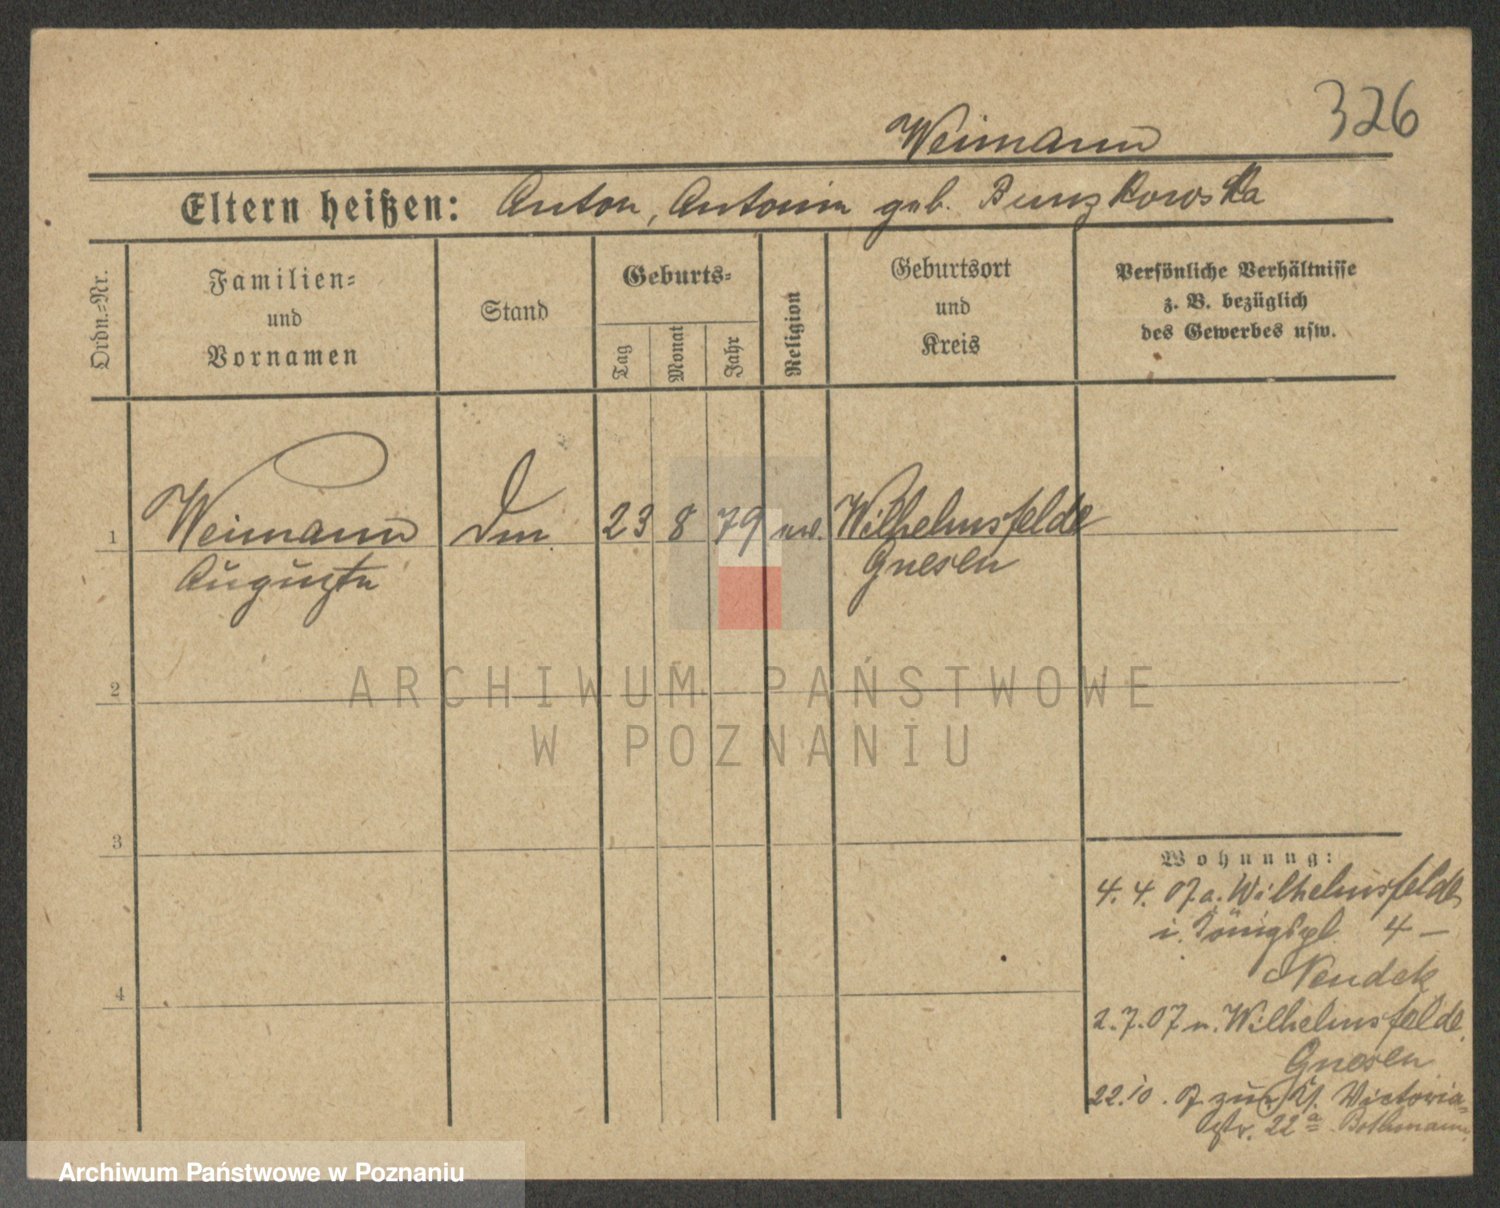 326
Weimann
Eltern heißen: Anton, Antonin geb.
Ordn.-Nr.
Familien-
und
Vornamen
Stand
Geburts-
Tag
Monat
Jahr
Religion
Geburtsort
und
Kreis
Persönliche Verhältnisse
z. B. bezüglich
des Gewerbes usw.
1 Weimann 23 8 79 Wilhelmsfelde
Auguste Gnesen
2
3
4
Wohnung:
4. 4. 07 a. Wilhelmsfelde
i. Königspl. 4 —
2. 7. 07 n. Wilhelmsfelde
Gnesen
22.10.07 zur. Victoria-
str. 22a Bothmann
ARCHIWUM PAŃSTWOWE
W POZNANIU
Archiwum Państwowe w Poznaniu